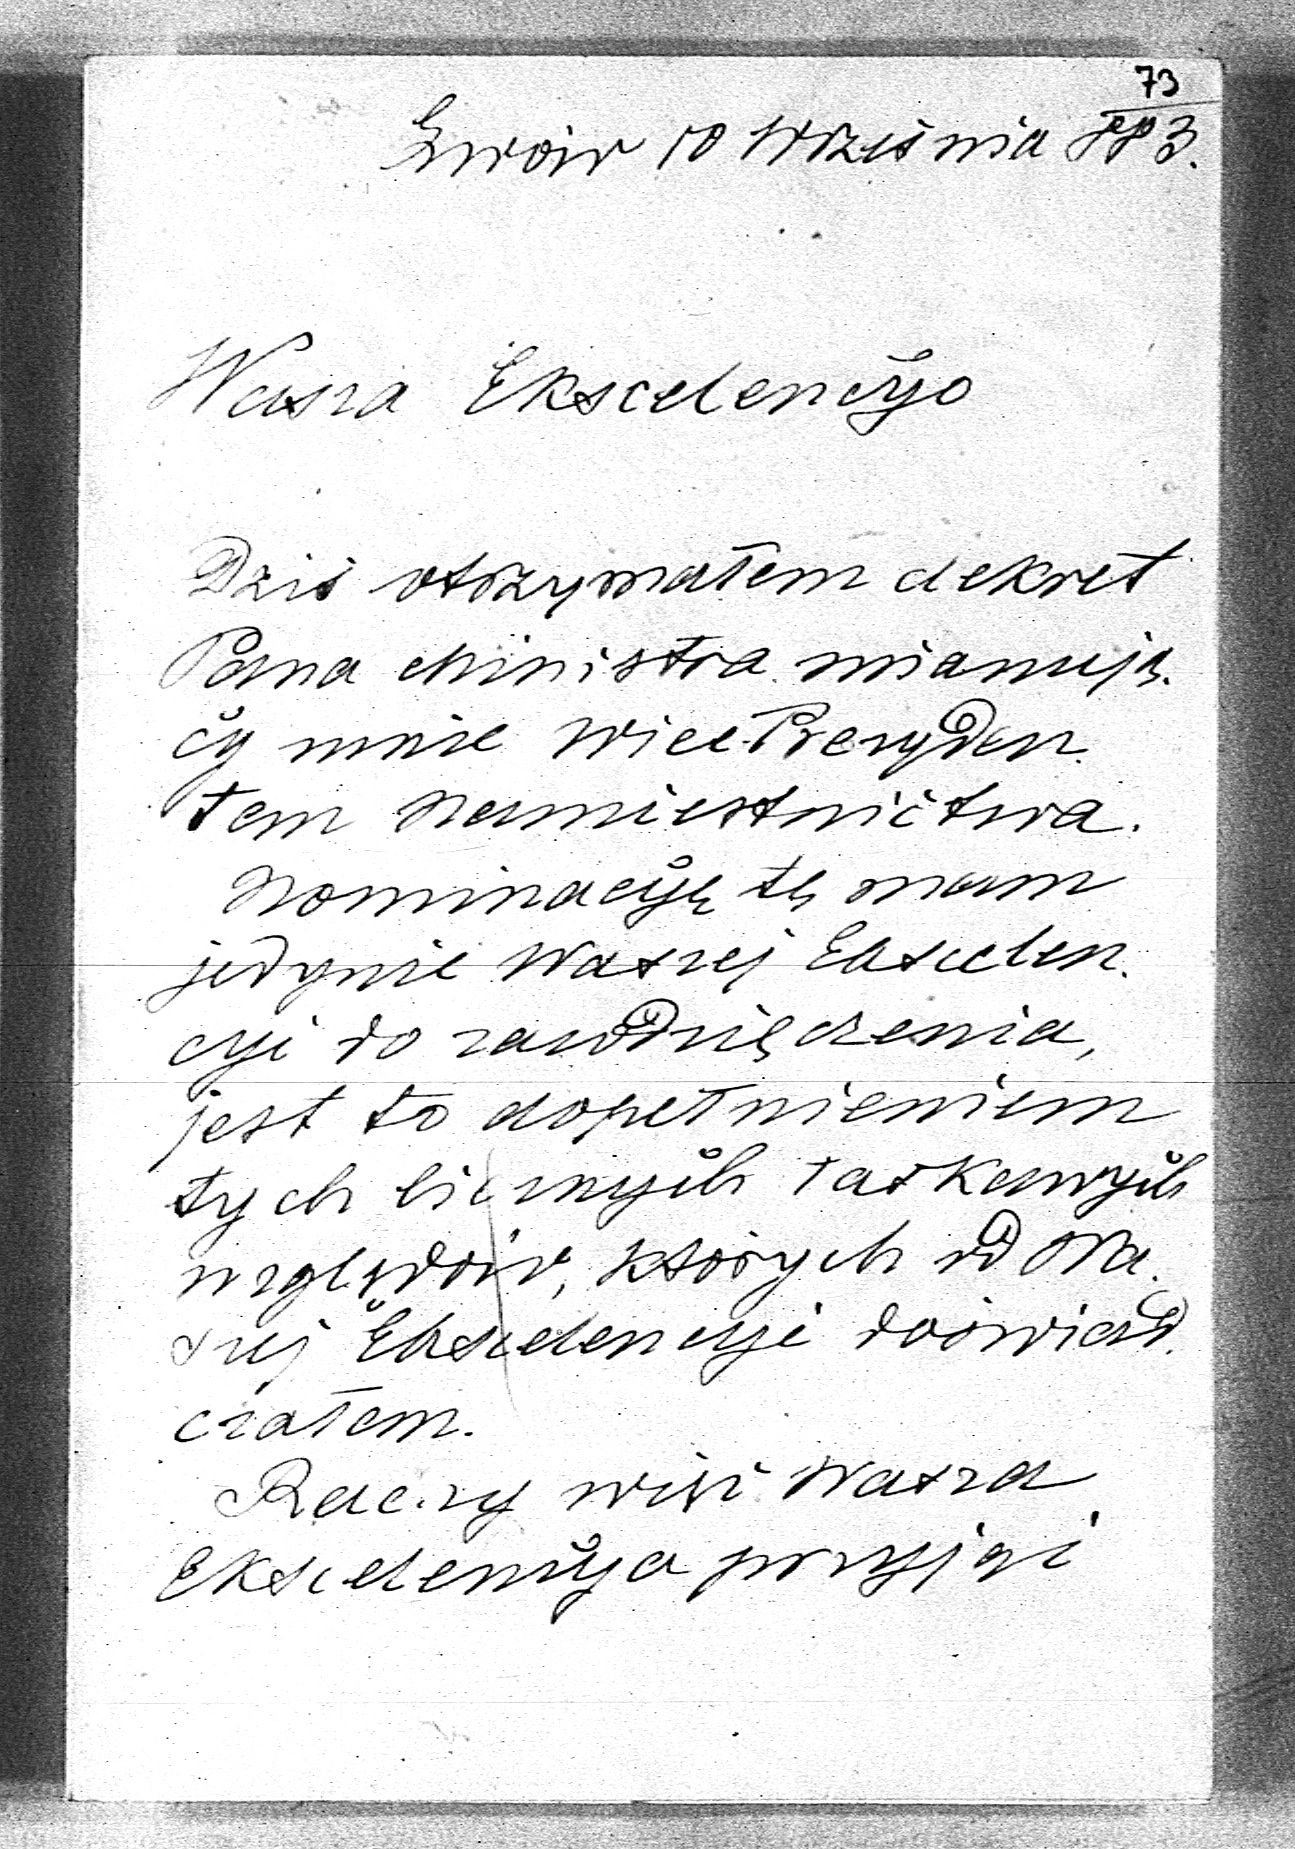 73
Lwów 10 Września 883.
Wasza Ekscelencyo
Dziś otrzymałem dekret
Pana Ministra mianują-
cy mnie Wice-Prezyden-
tem Namiestnictwa.
Nominacyę tę mam
jedynie Waszej Ekscelen-
cyi do zawdzięczenia,
jest to dopełnieniem
tych licznych łaskawych
względów, których od Wa-
szej Ekscelencyi doświad-
czałem.
Raczy więc Wasza
Ekscelencya przyjąć